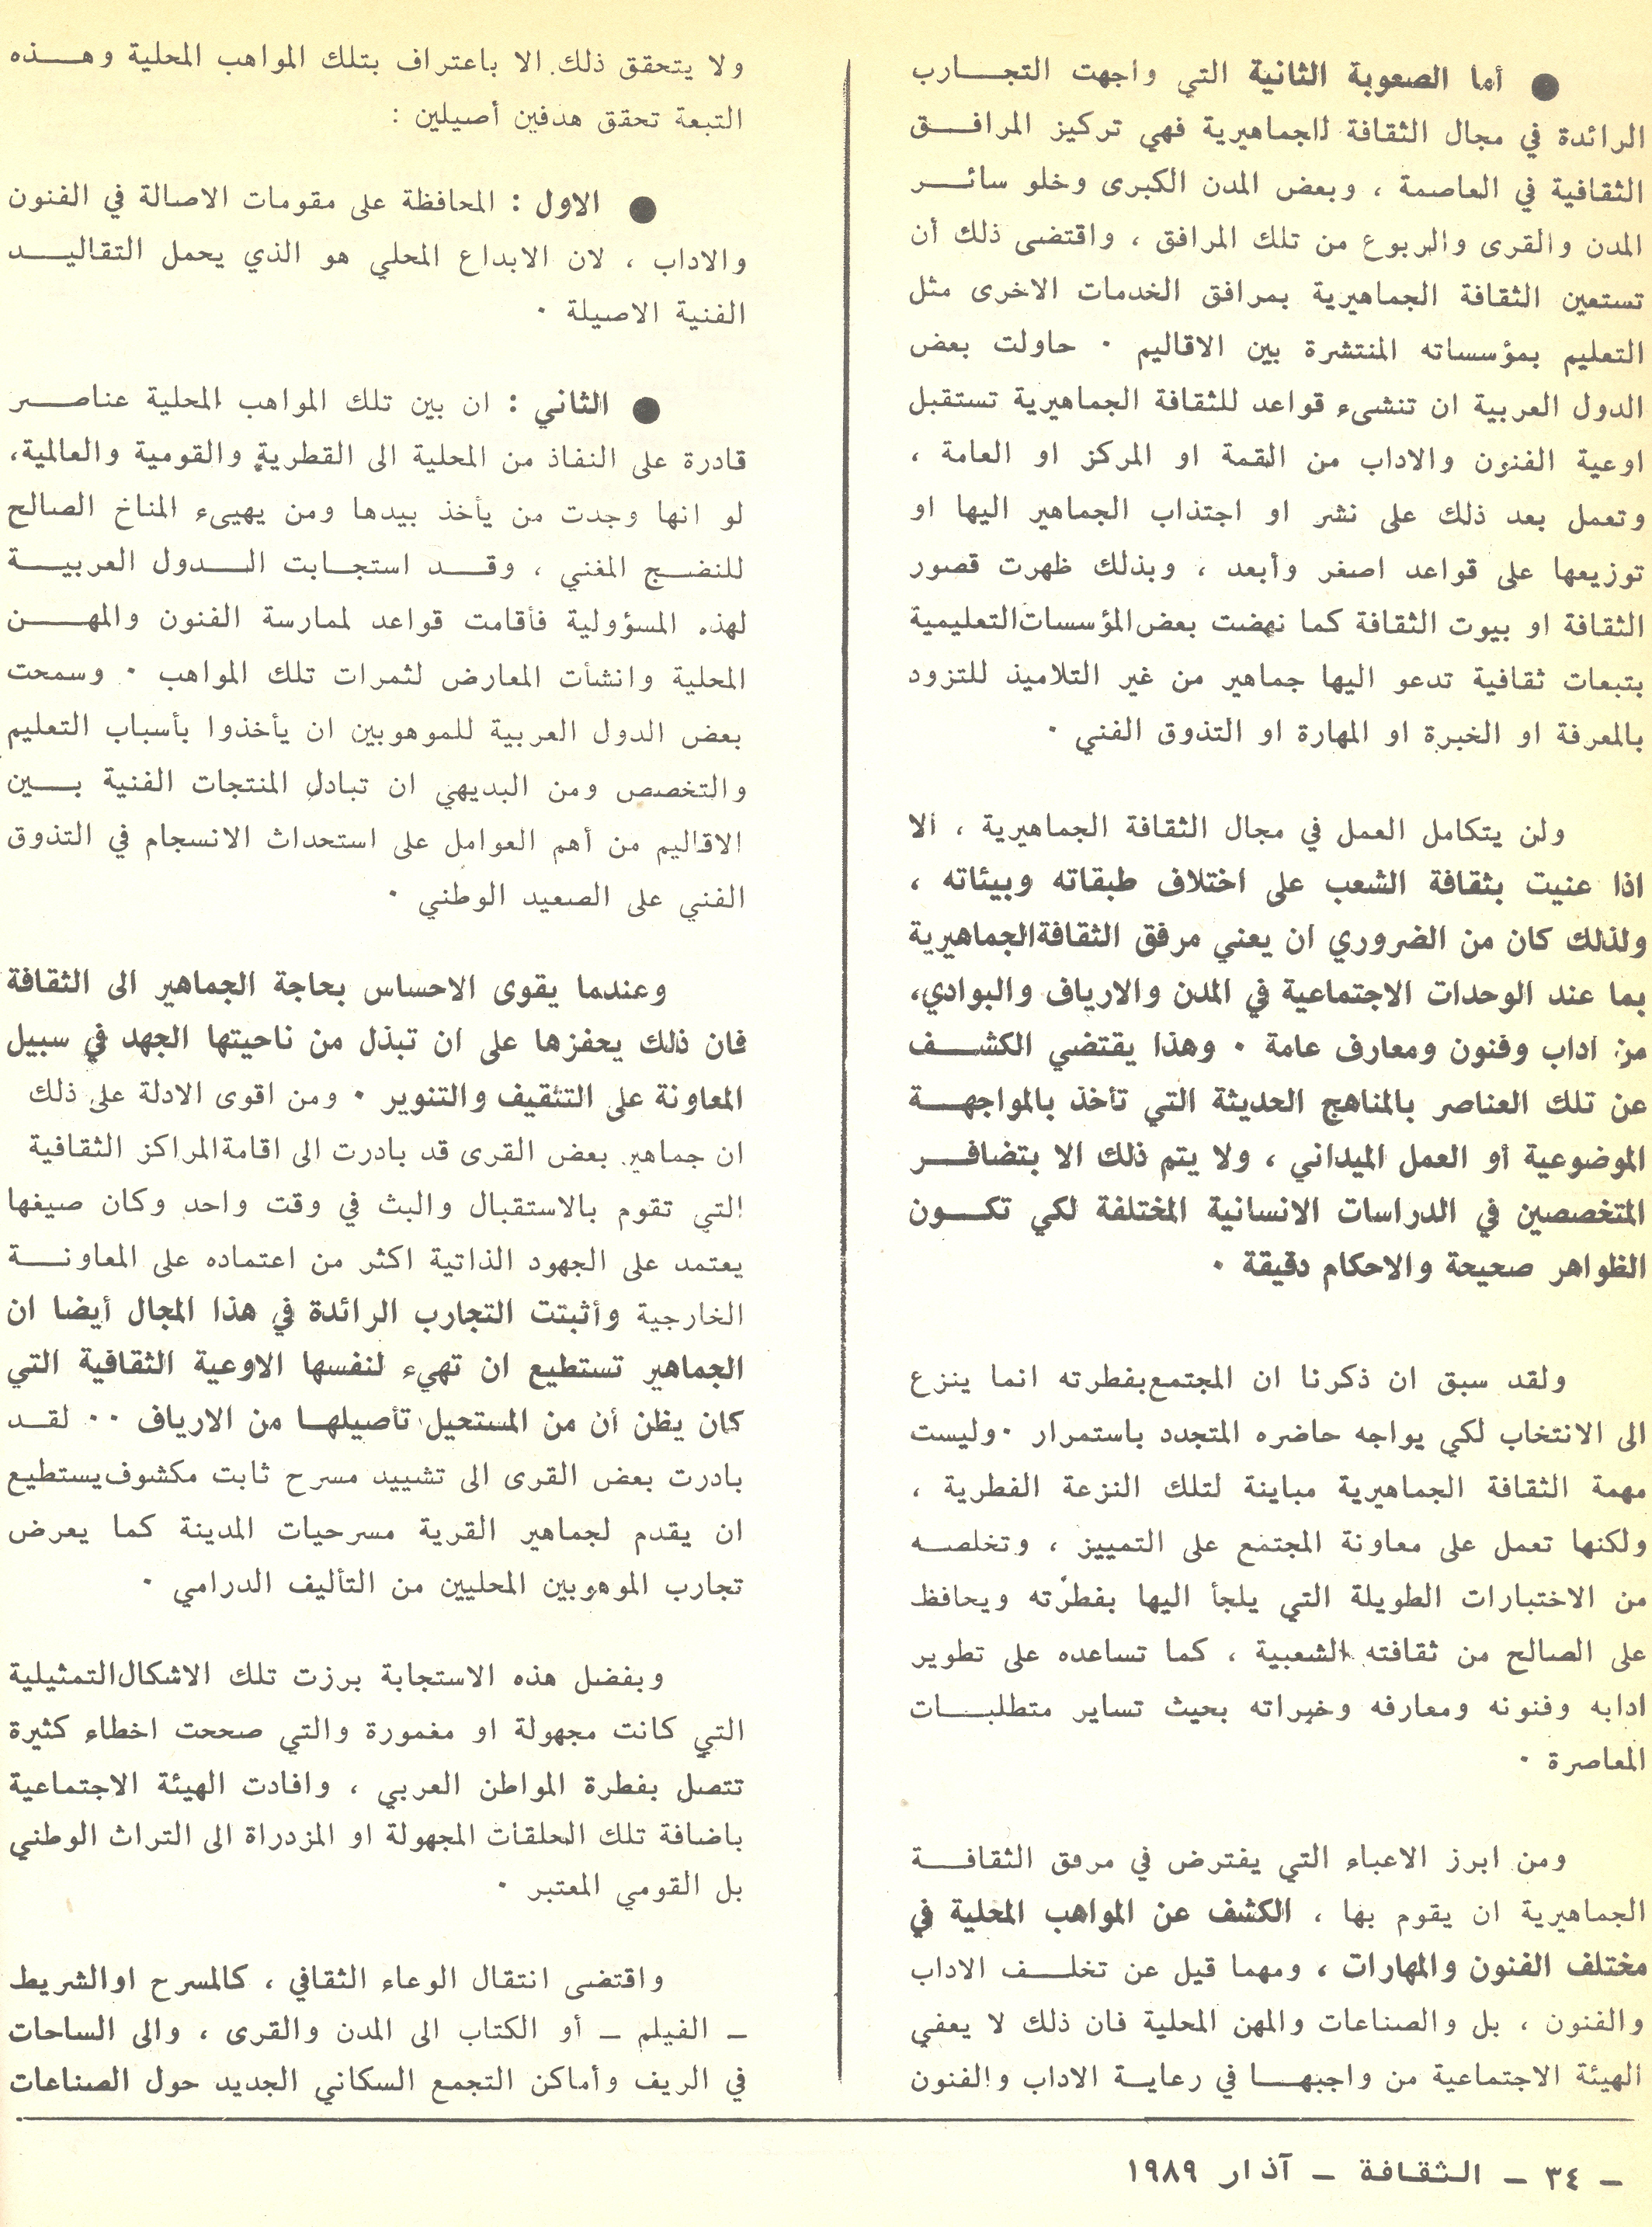 ● أما الصعوبة الثانية التي واجهت التجـــارب
الرائدة في مجال الثقافة الجماهيرية فهي تركيز المرافـــق
الثقافية في العاصمة ، وبعض المدن الكبرى وخلو سائـــر
المدن والقرى والربوع من تلك المرافق ، واقتضى ذلك أن
تستعين الثقافة الجماهيرية بمرافق الخدمات الاخرى مثل
التعليم بمؤسساته المنتشرة بين الاقاليم ٠ حاولت بعض
الدول العربية ان تنشىء قواعد للثقافة الجماهيرية تستقبل
اوعية الفنون والاداب من القمة او المركز او العامة ،
وتعمل بعد ذلك على نشر او اجتذاب الجماهير اليها او
توزيعها على قواعد اصغر وأبعد ، وبذلك ظهرت قصور
الثقافة او بيوت الثقافة كما نهضت بعض المؤسسات التعليمية
بتبعات ثقافية تدعو اليها جماهير من غير التلاميذ للتزود
بالمعرفة او الخبرة او المهارة او التذوق الفني ٠
ولن يتكامل العمل في مجال الثقافة الجماهيرية ، الا
اذا عنيت بثقافة الشعب على اختلاف طبقاته وبيئاته ،
ولذلك كان من الضروري ان يعني مرفق الثقافة الجماهيرية
بما عند الوحدات الاجتماعية في المدن والارياف والبوادي،
من اداب وفنون ومعارف عامة ٠ وهذا يقتضي الكشـــف
عن تلك العناصر بالمناهج الحديثة التي تأخذ بالمواجهـــة
الموضوعية أو العمل الميداني ، ولا يتم ذلك الا بتضافـــر
المتخصصين في الدراسات الانسانية المختلفة لكي تكـــون
الظواهر صحيحة والاحكام دقيقة ٠
ولقد سبق ان ذكرنا ان المجتمع بفطرته انما ينزع
الى الانتخاب لكي يواجه حاضره المتجدد باستمرار ٠ وليست
مهمة الثقافة الجماهيرية مباينة لتلك النزعة الفطرية ،
ولكنها تعمل على معاونة المجتمع على التمييز ، وتخلصـه
من الاختبارات الطويلة التي يلجأ اليها بفطرته ويحافظ
على الصالح من ثقافته الشعبية ، كما تساعده على تطوير
ادابه وفنونه ومعارفه وخبراته بحيث تساير متطلبـــات
المعاصرة ٠
ومن ابرز الاعباء التي يفترض في مرفق الثقافـــة
الجماهيرية ان يقوم بها ، الكشف عن المواهب المحلية في
مختلف الفنون والمهارات ، ومهما قيل عن تخلـــف الاداب
والفنون ، بل والصناعات والمهن المحلية فان ذلك لا يعفي
الهيئة الاجتماعية من واجبهـــا في رعايـة الاداب والفنون
ولا يتحقق ذلك الا باعتراف بتلك المواهب المحلية وهـــذه
التبعة تحقق هدفين أصيلين :
● الاول : المحافظة على مقومات الاصالة في الفنون
والاداب ، لان الابداع المحلي هو الذي يحمل التقاليـــد
الفنية الاصيلة ٠
● الثاني : ان بين تلك المواهب المحلية عناصـــر
قادرة على النفاذ من المحلية الى القطرية والقومية والعالمية،
لو انها وجدت من يأخذ بيدها ومن يهيىء المناخ الصالح
للنضـــج المغني ، وقـــد استجـابت الـــدول العربيـــة
لهذه المسؤولية فأقامت قواعد لممارسة الفنون والمهـــن
المحلية وانشأت المعارض لثمرات تلك المواهب ٠ وسمحت
بعض الدول العربية للموهوبين ان يأخذوا بأسباب التعليم
والتخصص ومن البديهي ان تبادل المنتجات الفنية بـــين
الاقاليم من أهم العوامل على استحداث الانسجام في التذوق
الفني على الصعيد الوطني ٠
وعندما يقوى الاحساس بحاجة الجماهير الى الثقافة
فان ذلك يحفزها على ان تبذل من ناحيتها الجهد في سبيل
المعاونة على التثقيف والتنوير ٠ ومن اقوى الادلة على ذلك
ان جماهير بعض القرى قد بادرت الى اقامة المراكز الثقافية
التي تقوم بالاستقبال والبث في وقت واحد وكان صيغها
يعتمد على الجهود الذاتية اكثر من اعتماده على المعاونـــة
الخارجية وأثبتت التجارب الرائدة في هذا المجال أيضا ان
الجماهير تستطيع ان تهيء لنفسها الاوعية الثقافية التي
كان يظن أن من المستحيل تأصيلهـا من الارياف ٠٠ لقـــد
بادرت بعض القرى الى تشييد مسرح ثابت مكشوف يستطيع
ان يقدم لجماهير القرية مسرحيات المدينة كما يعرض
تجارب الموهوبين المحليين من التأليف الدرامي ٠
وبفضل هذه الاستجابة برزت تلك الاشكال التمثيلية
التي كانت مجهولة او مغمورة والتي صححت اخطاء كثيرة
تتصل بفطرة المواطن العربي ، وافادت الهيئة الاجتماعية
باضافة تلك الحلقات المجهولة او المزدراة الى التراث الوطني
بل القومي المعتبر ٠
واقتضى انتقال الوعاء الثقافي ، كالمسرح او الشريط
ـ الفيلم ـ أو الكتاب الى المدن والقرى ، والى الساحات
في الريف وأماكن التجمع السكاني الجديد حول الصناعات
ـ ٣٤ ـ الثقافة ـ آذار ١٩٨٩